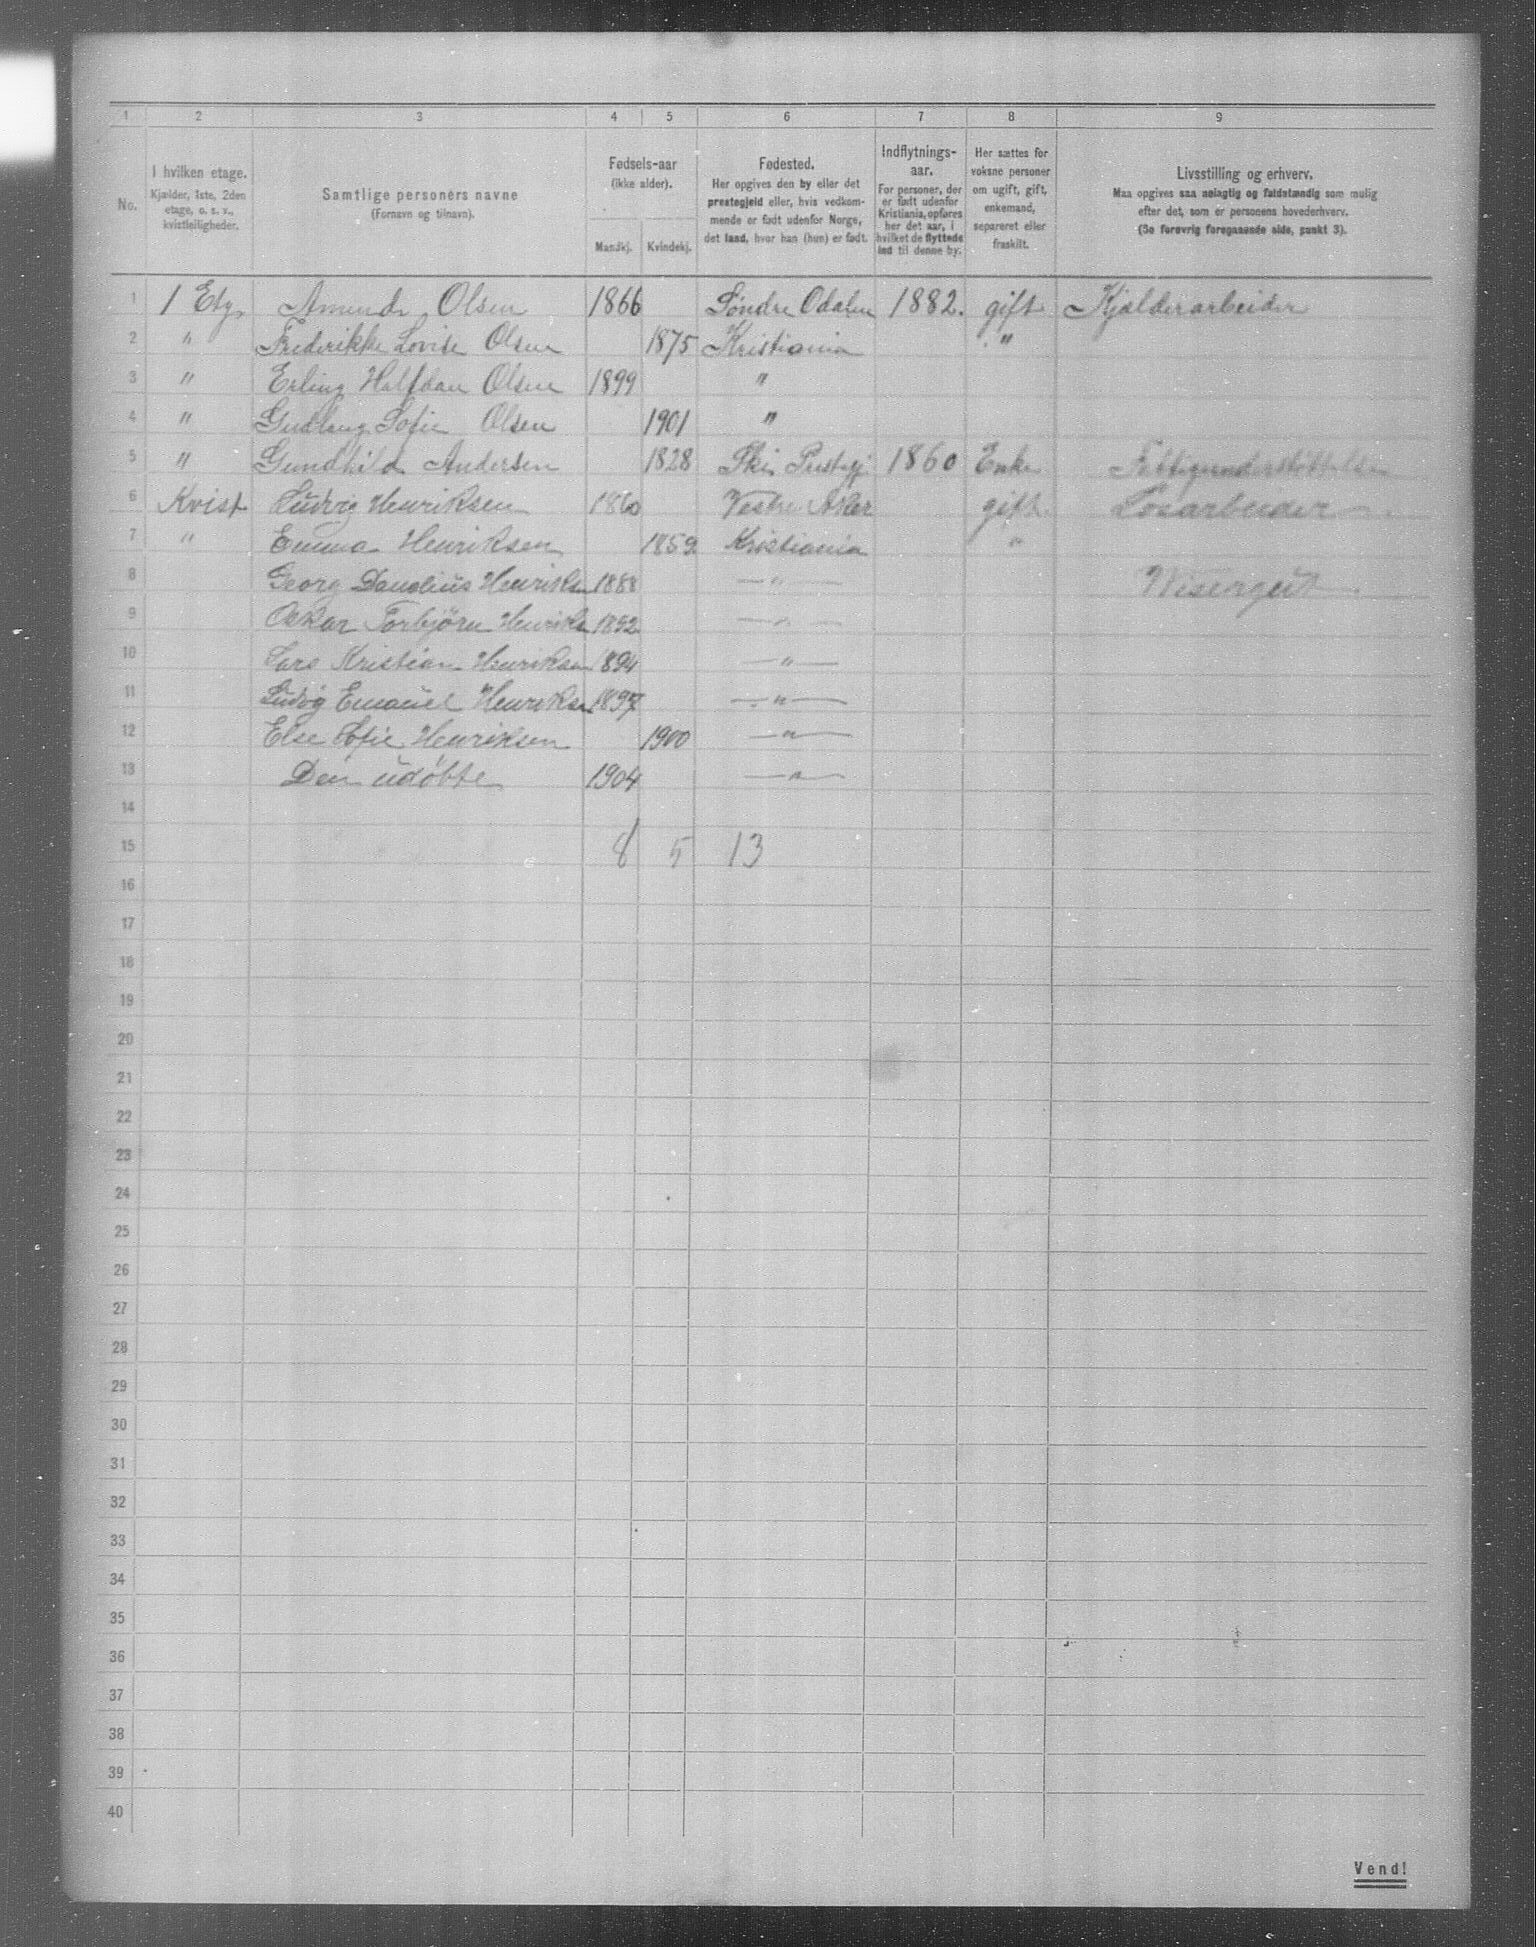 1 2 3 4 5 6 7 8 9
No.
I hvilken etage.
Kjælder, 1ste, 2den
etage, o. s. v.,
kvistleiligheder.
Samtlige personers navne
(Fornavn og tilnavn).
Fødsels-aar
(ikke alder).
Mandkj. Kvindekj.
Fødested.
Her opgives den by eller det
præstegjeld eller, hvis vedkom-
mende er født udenfor Norge,
det land, hvor han (hun) er født.
Indflytnings-
aar.
For personer, der
er født udenfor
Kristiania, opføres
her det aar, i
hvilket de flyttede
ind til denne by.
Her sættes for
voksne personer
om ugift, gift,
enkemand,
separeret eller
fraskilt.
Livsstilling og erhverv.
Maa opgives saa nøiagtig og fuldstændig som mulig
efter det, som er personens hovederhverv.
(Se forøvrig foregaaende side, punkt 3).
1 1 Etg. Amund Olsen 1866 Søndre Odalen 1882. gift Kjælderarbeider
2 " Frederikke Lovise Olsen 1875 Kristiania "
3 " Erling Halfdan Olsen 1899 "
4 " Gudlaug Sofie Olsen 1901 "
5 " Gundhild Andersen 1828 Ski Prestegj 1860 Enke Fattigunderstøttelse
6 Kvist Ludvig Henriksen 1860 Vestre Aker gift Løsarbeider
7 " Emma Henriksen 1859 Kristiania "
8 Georg Danelius Henriksen 1888 — " — Visergut
9 Oskar Torbjørn Henriksen 1892 — " —
10 Lars Kristian Henriksen 1894 — " —
11 Ludvig Emanuel Henriksen 1897 — " —
12 Else Sofie Henriksen 1900 — " —
13 Den udøbte 1904 — " —
14
15 8 5 13
16
17
18
19
20
21
22
23
24
25
26
27
28
29
30
31
32
33
34
35
36
37
38
39
40
Vend!